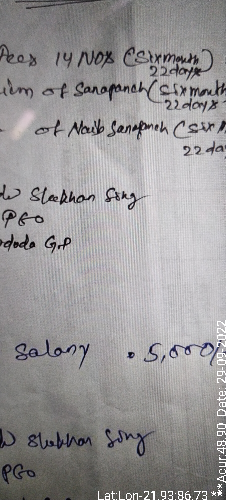 Fees 14 Nos (Six month)
22 days
of Sarapanch (Six month
22 days
of Naib Sarapanch (Six m
22 day
Song
PEO
G.P
Salary 5,000/
Song
PEO
Lat:Lon-21.93:86.73 ***Acur:48.90 Date: 29-09-2022